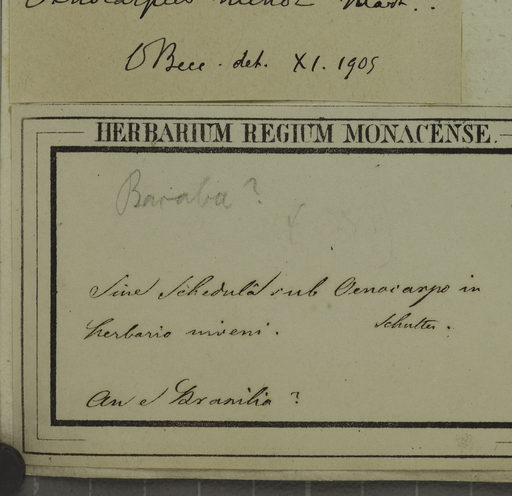 Oenocarpus minor Mart.
OBecc. det. XI. 1905
HERBARIUM REGIUM MONACENSE.
Bacaba?
Sine Schedulâ sub Oenocarpo in
herbario inveni. Schultes.
An e Brasilia?